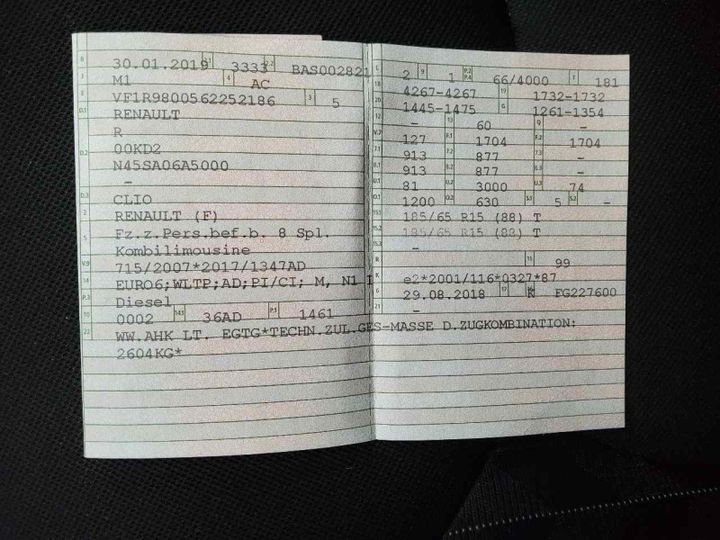 30.01.2019 3333 BAS002821
M1 AC
VF1R9800562252186 5
RENAULT
R
00KD2
N45SA06A5000
-
CLIO
RENAULT (F)
Fz.z.Pers.bef.b. 8 Spl.
Kombilimousine
715/2007*2017/1347AD
EURO6;WLTP;AD;PI/CI; M, N1 I
Diesel
0002 36AD 1461
WW.AHK LT. EGTG*TECHN.ZUL.GES-MASSE D.ZUGKOMBINATION:
2604KG*
2 1 66/4000 181
4267-4267 1732-1732
1445-1475 1261-1354
- 60 -
127 1704 1704
913 877 -
913 877 -
81 3000 74
1200 630 5 -
185/65 R15 (88) T
185/65 R15 (88) T
-
99
e2*2001/116*0327*87
29.08.2018 K FG227600
-